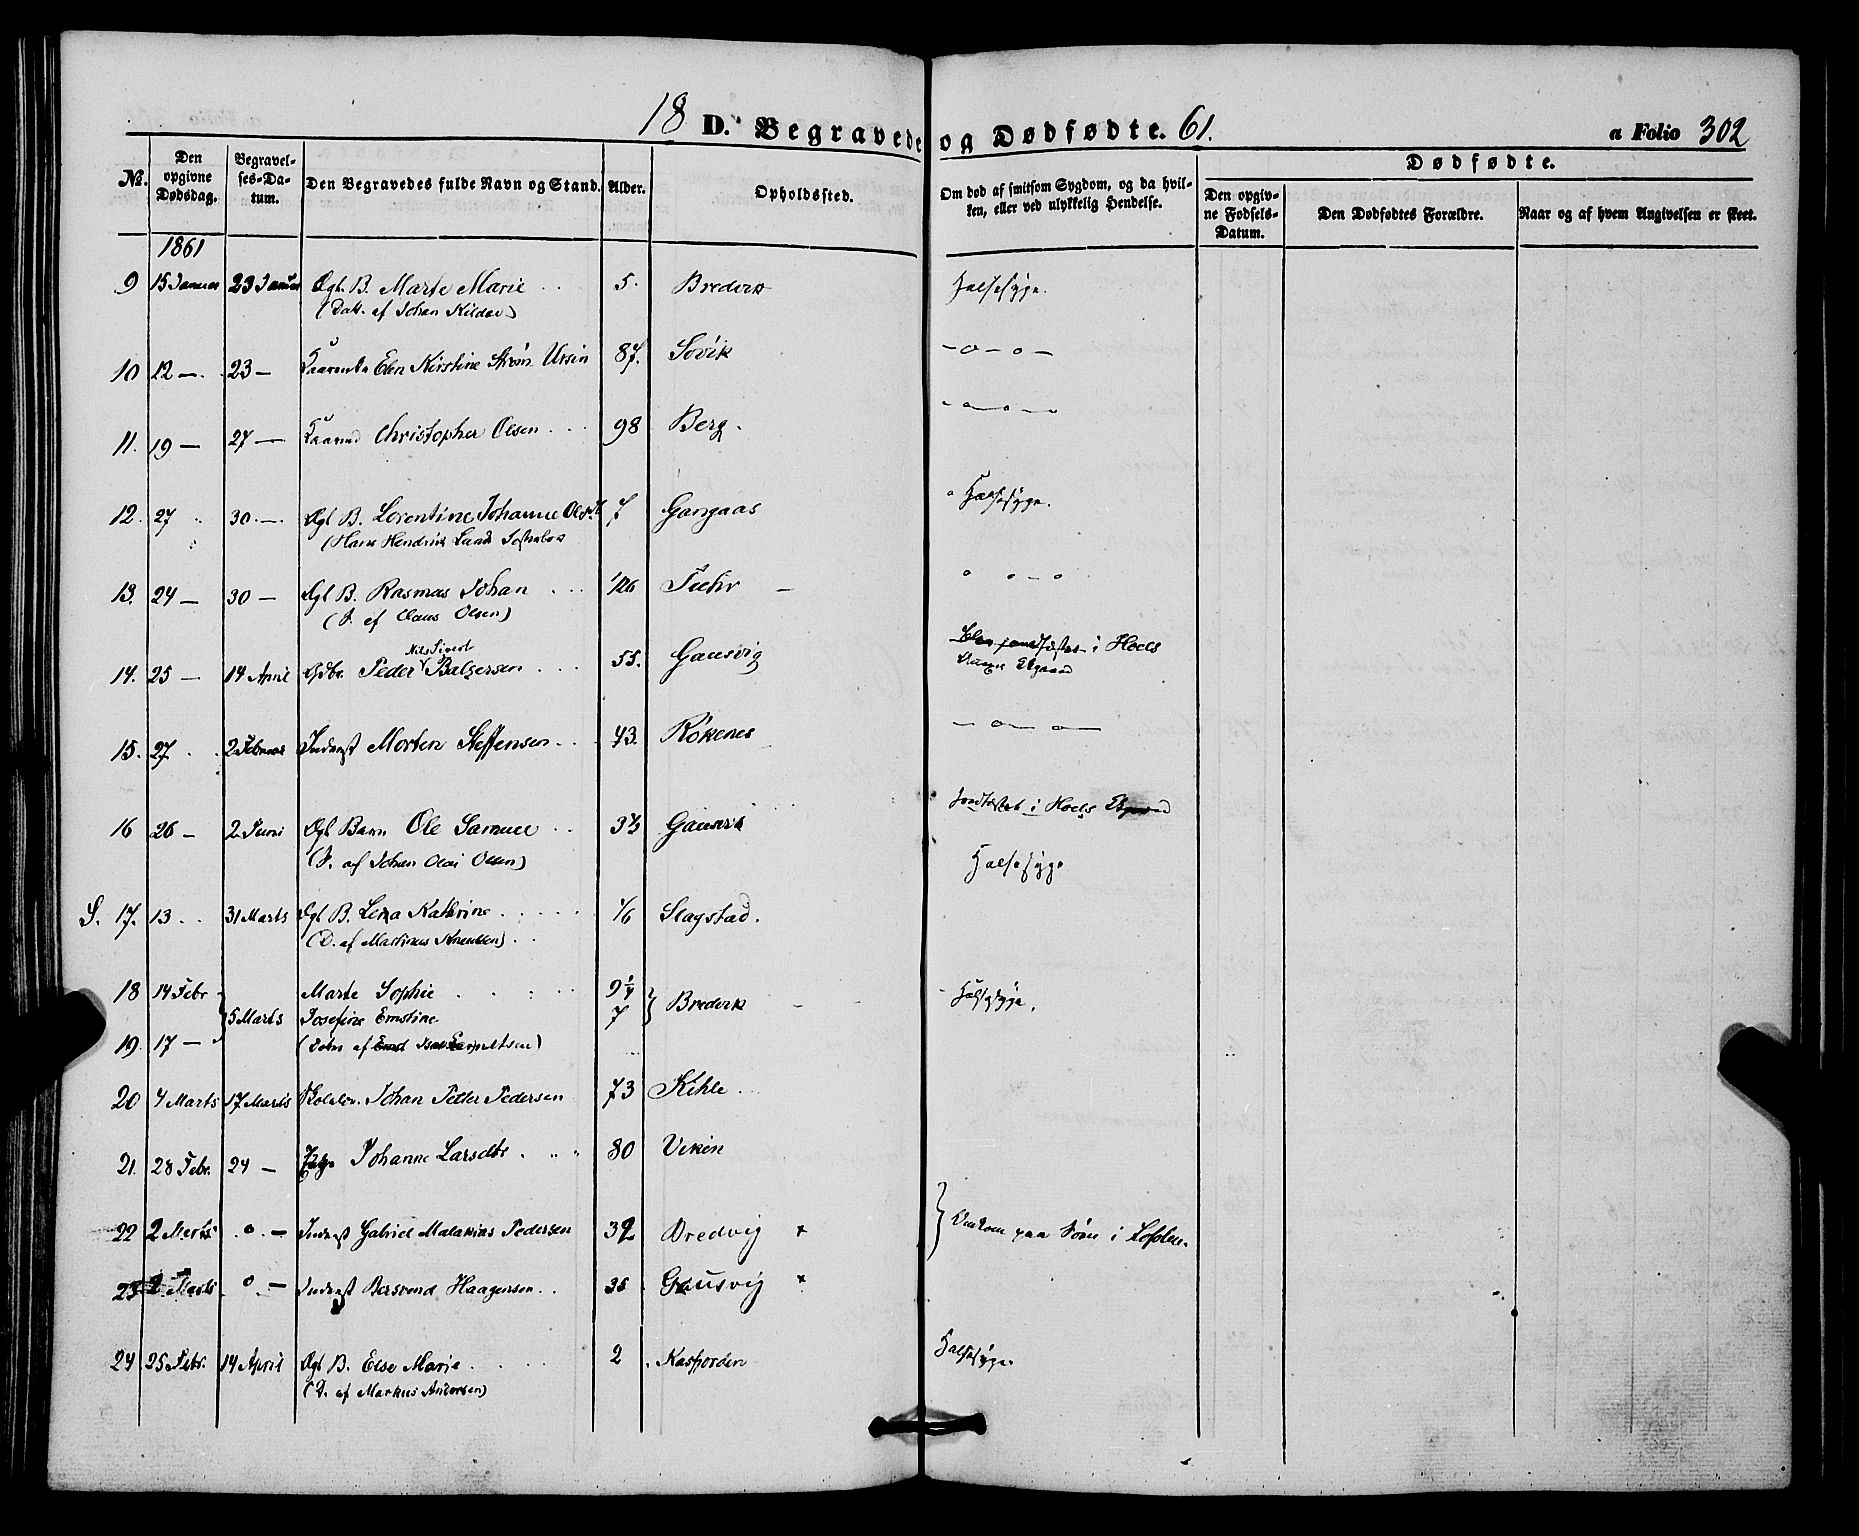 18 D. Begravede og Dødfødte. 61.
a Folio 302
No.
Den opgivne Dødsdag.
Begravelses-Datum.
Den Begravedes fulde Navn og Stand.
Alder.
Opholdssted.
Om død af smitsom Sygdom, og da hvilken, eller ved ulykkelig Hendelse.
Dødfødte.
Den opgivne Fødsels-Datum.
Den Dødfødtes Forældre.
Naar og af hvem Angivelsen er skeet.
1861
9 15 Januar 23 Januar Ægt. B. Marte Marie 5. Bredvik Halssyge.
(Datt. af Johan Kildal)
10 12 — 23 — Elen Kirstine Strøm Ursin 87. Sovik — o — o —
11. 19 — 27 — Christopher Olsen 98 Berg.
12. 27 30 — Ægt B. Lorentine Johanne 7 Gangaas Halssyge.
(Hans Hendrik Lund
13. 24 — 30 — Ægt B. Rasmus Johan —
(S. af Claus Olsen)
Nils Sivert
14. 25 — 14 April Peder Balzersen 55. Gausvig i Hoels
15. 27 2 Februar Inderst Morten Steffensen 43. Røkenes — o — o —
16 26 — 2 Juni Ægt Barn Ole Samuel Gausvik i Hoels
(S. af Johan Olai Olsen) Halssyge
S. 17. 13 31 Marts Ægt B. Lena Kathrine 1/6 Slagstad.
(D. af Martinus Knudsen)
18 14 Febr Marte Sophie 9 1/4 Halssyge.
5 Marts Josefine Ernstine 7 Bredvik
19. 17 — (Døtre af
20 4 Marts 17 Marts Johan Peder Pedersen 73 Kihle
21. 28 Febr. 24 — Johanne Larsdtr 80 Viken
22 2 Marts o — Inderst Gabriel Malakias Pedersen 32 Bredvig + Omkom paa Søen i Lofoten.
23 2 Marts o — Inderst Bersvend Haagensen 35 Gausvig +
24 25 Febr. 14 April Ægt B. Else Marie 2 Kasfjorden Halssyge.
(D. af Markus Andersen)